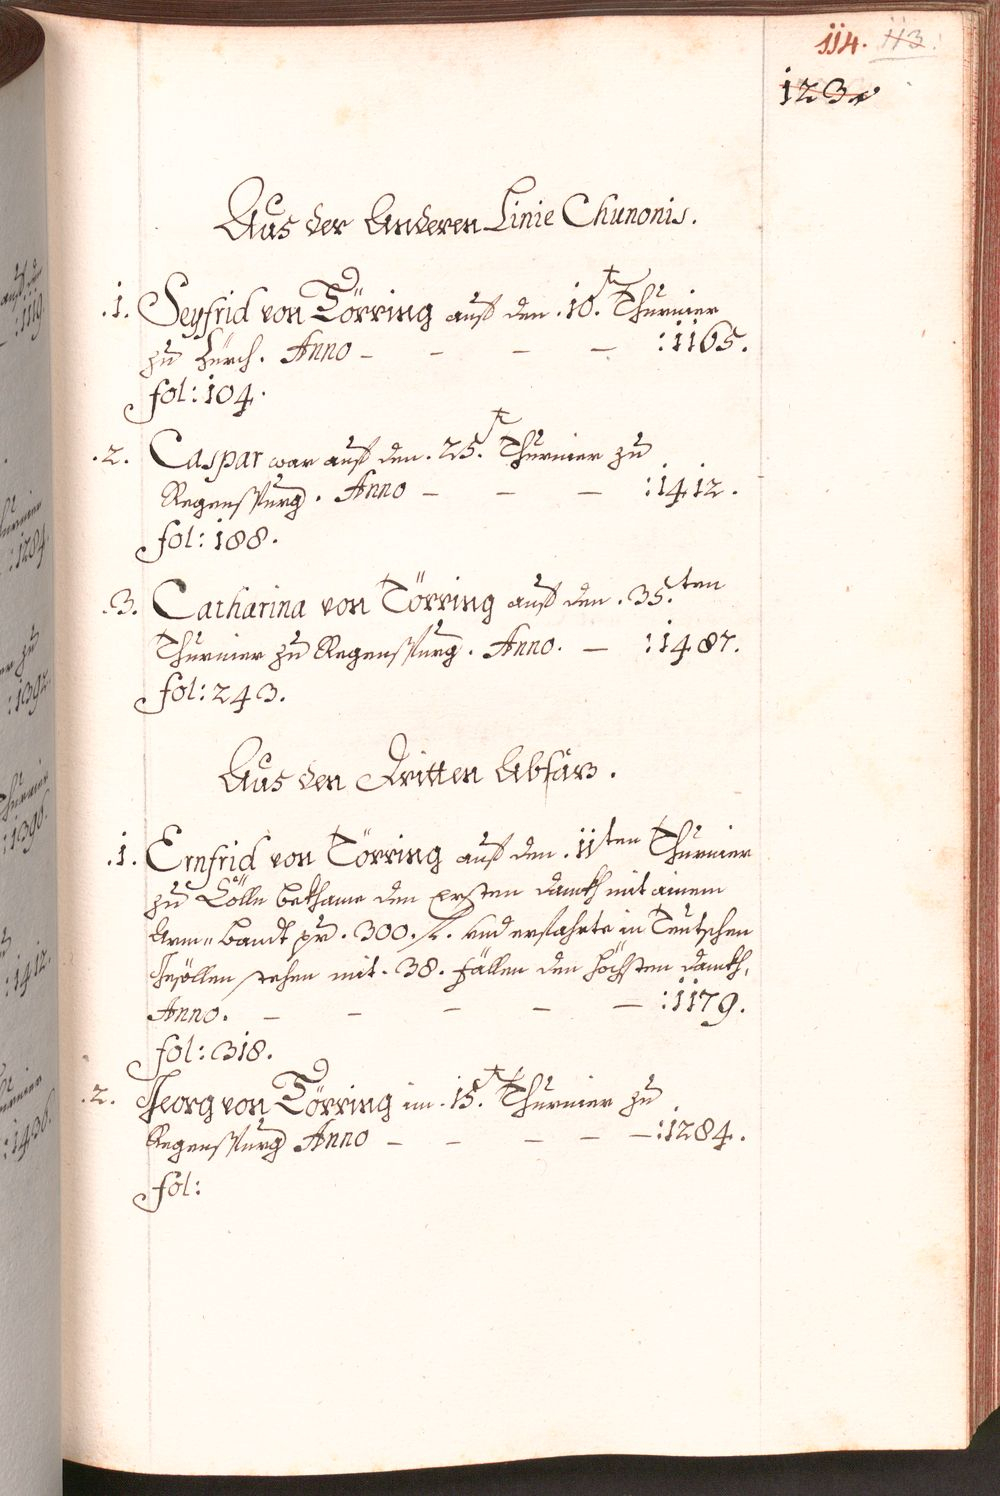 114. 113.
123
Aus der Anderen Linie Chunonis.
.1. Seyfrid von Törring auff den .10.t Thurnier
zu Zürch. Anno – – – – :1165.
fol: 104.
.2. Caspar war auff den .25.t Thurnier zu
Regenspurg. Anno – – – :1412.
fol: 188.
.3. Catharina von Törring auff den .35.ten
Thurnier zu Regenspurg. Anno. – :1487.
fol: 243.
Aus den Dritten Absäz.
.1. Ernfrid von Törring auff den .11ten Thurnier
zu Cölln bekhame den Ersten dankh mit ainem
Arm=Bandt pr. 300. f. und in Teutschen
Gesöllen stehen mit .38. fällen den höchsten dankh,
Anno. – – – – – :1179.
fol: 318.
.2. Georg von Törring im .15.t Thurnier zu
Regenspurg Anno – – – – – :1284.
fol: